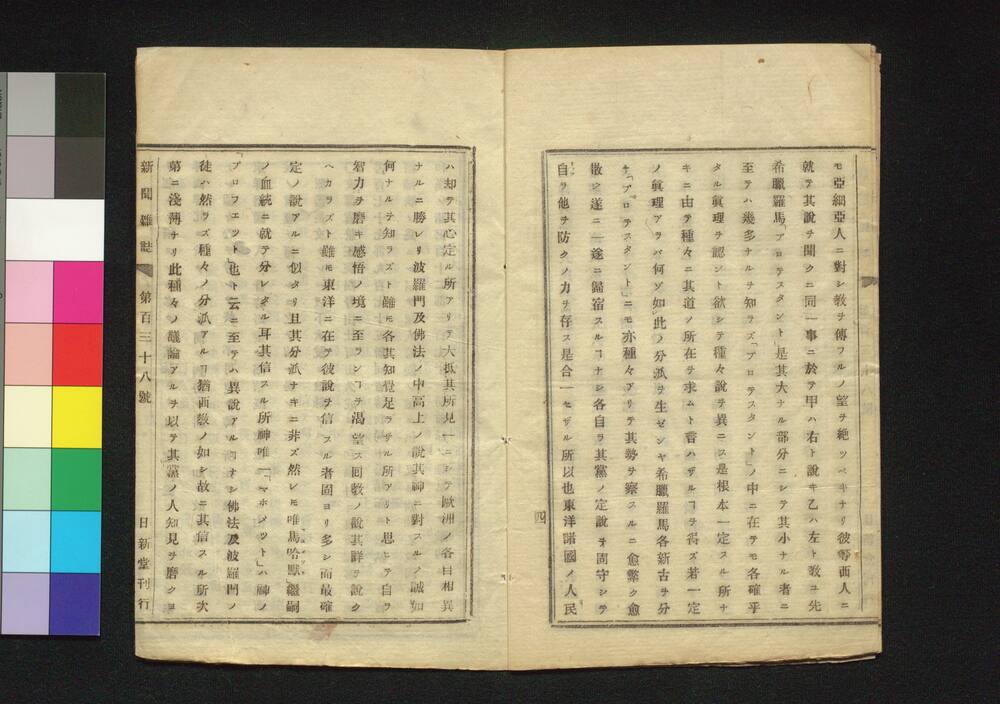 モ亞細亞人ニ對シ敎ヲ傳フルノ望ヲ絶ツベキナリ彼等西人ニ
就テ其說ヲ聞クニ同一事ニ於テ甲ハ右ト說キ乙ハ左ト敎ユ先
希臘羅馬「プロテスタント」是其大ナル部分ニシテ其小ナル者ニ
至テハ幾多ナルヲ知ラズ「プロテスタント」ノ中ニ在テモ各確乎
タル眞理ヲ認ント欲シテ種々說ヲ異ニス是根本一定スル所ナ
キニ由テ種々ニ其道ノ所在ヲ求ムト言ハザルヿヲ得ズ若一定
ノ眞理アラバ何ゾ如此ノ分派ヲ生ゼンヤ希臘羅馬各新古ヲ分
チ「プロテスタント」ニモ亦種々アリテ其勢ヲ察スルニ愈繁ク愈
散シ遂ニ一途ニ歸宿スルヿナシ各自ラ其黨ノ定說ヲ固守シテ
自ラ他ヲ防クノ力ヲ存ス是合一セザル所以也東洋諸國ノ人民
四
ハ却テ其心定ル所アリテ大抵其所見一ニシテ歐洲ノ各自相異
ナルニ勝レリ波羅門及佛法ノ中高上ノ說其神ニ對スルノ誠如
何ナルヲ知ラズト雖モ各其知覺足ラザル所アリト思ヒテ自ラ
智力ヲ磨キ感悟ノ境ニ至ランヿヲ渴望ス回敎ノ說其詳ヲ說ク
ヘカラズト雖モ東洋ニ在テ彼說ヲ信スル者固ヨリ多シ而最確
定ノ說アルニ似タリ且其分派ナキニ非ズ然レモ唯馬哈默繼嗣
ノ血統ニ就テ分レタル耳其信スル所神唯一「マホメット」ハ神ノ
「プロフエット」也ト云ニ至テハ異說アルヿナシ佛法及波羅門ノ
徒ハ然ラズ種々ノ分派アルヿ猶西敎ノ如シ故ニ其信スル所次
第ニ淺薄ナリ此種々ノ議論アルヲ以テ其黨ノ人知見ヲ磨クヿ
新聞雜誌 第百三十八號 日新堂刊行